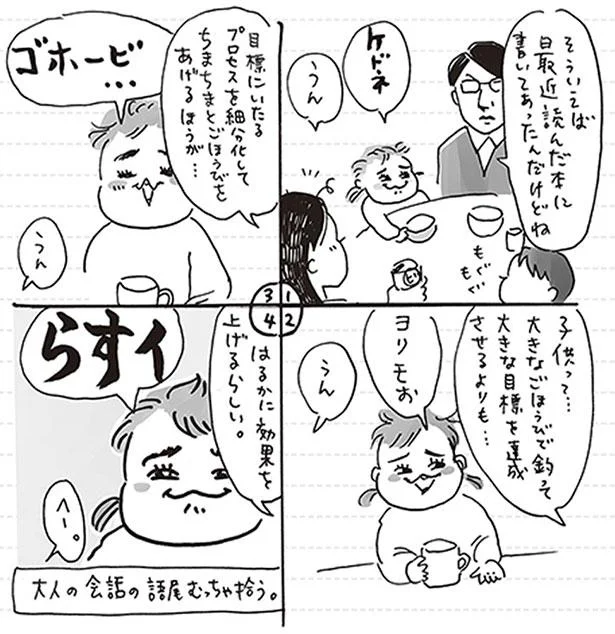 そういえば
最近読んだ本に
書いてあったんだけどね
ケドネ
うん
もぐ
もぐ
1
2
子供って…
大きなごほうびで釣って
大きな目標を達成
させるよりも…
ヨリモぉ
うん
3
目標にいたる
プロセスを細分化して
ちまちまとごほうびを
あげるほうが…
ゴホービ…
うん
4
はるかに効果を
上げるらしい。
らすイ
へー。
大人の会話の語尾むっちゃ拾う。